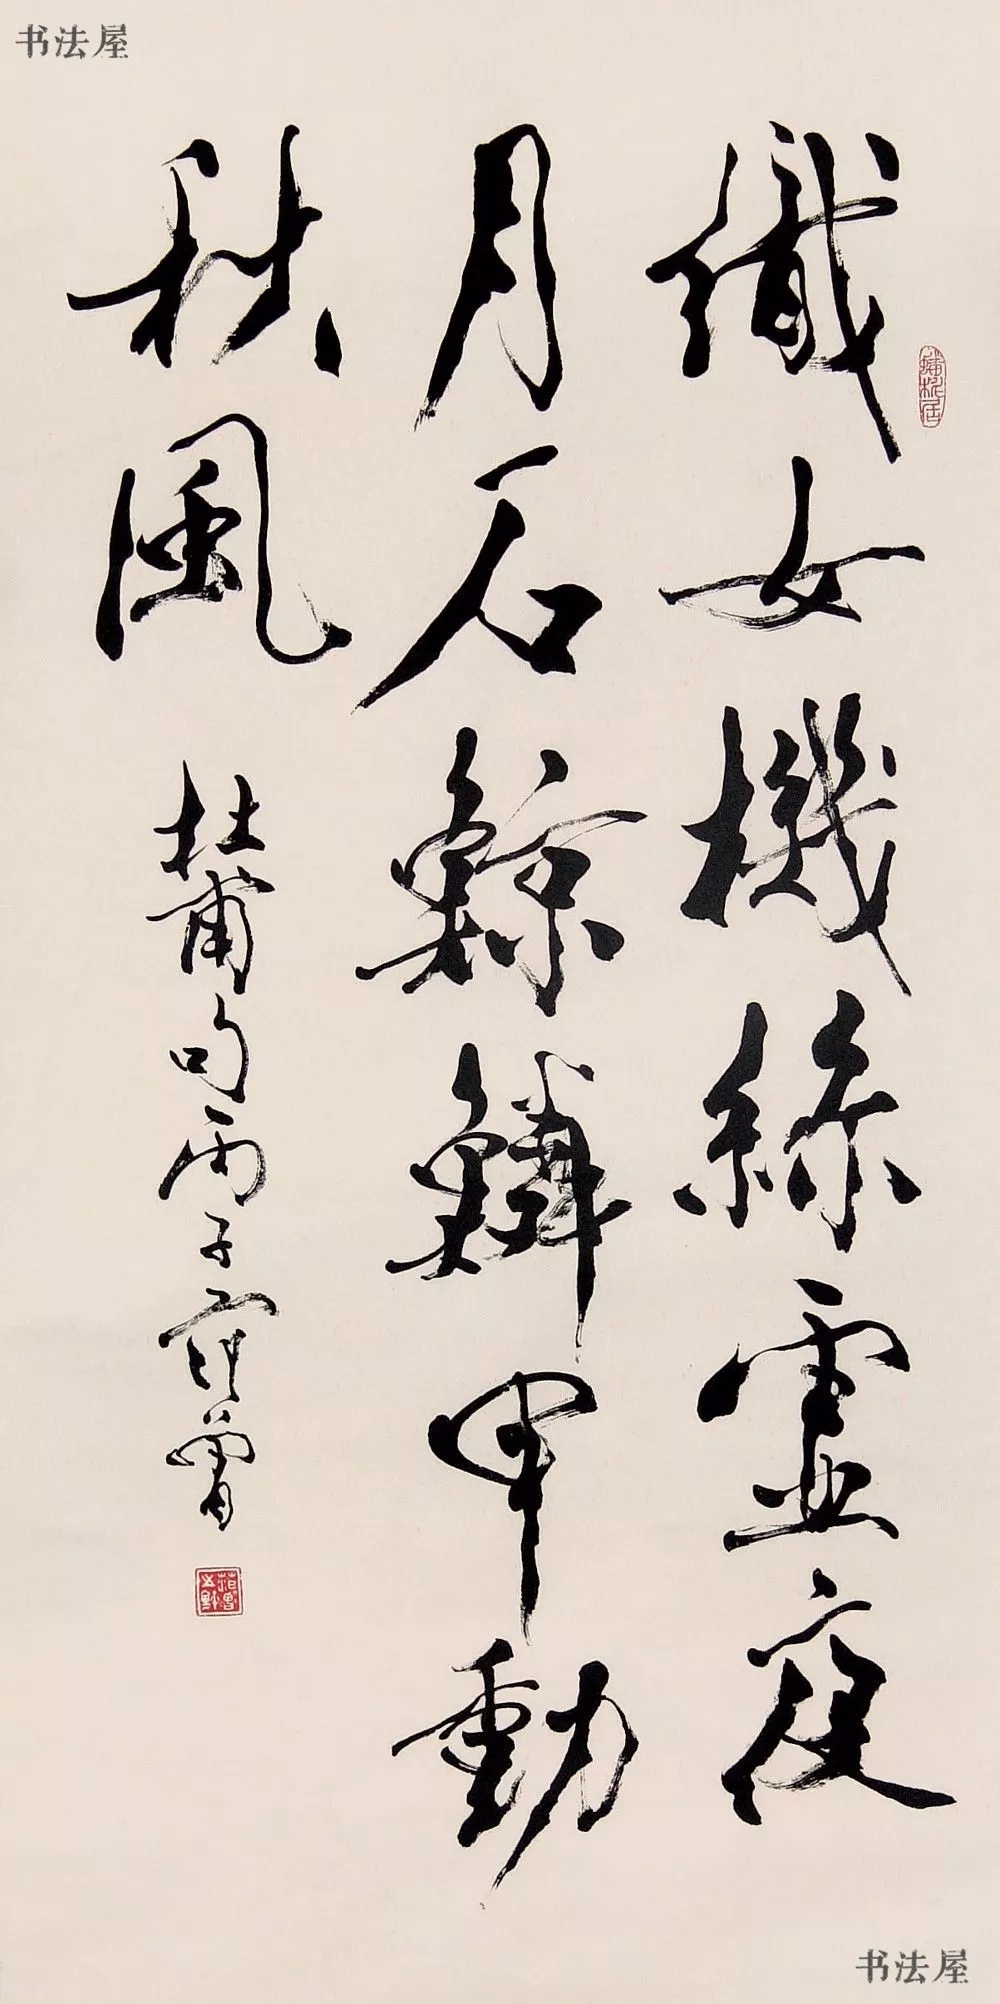 书法屋
織女機絲虛夜
月石鯨鱗甲動
秋風
杜甫句丙子范曾
书法屋